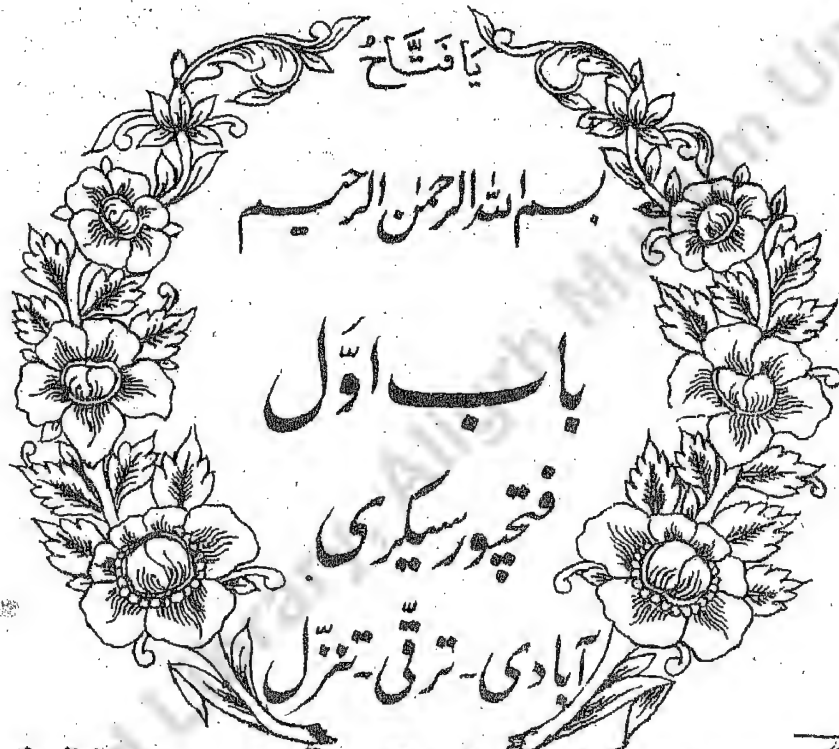 یَا فَتَّاحُ
بسم اللہ الرحمٰن الرحیم
باب اوَّل
فتحپور سیکری
آبادی - ترقّی - تنزّل